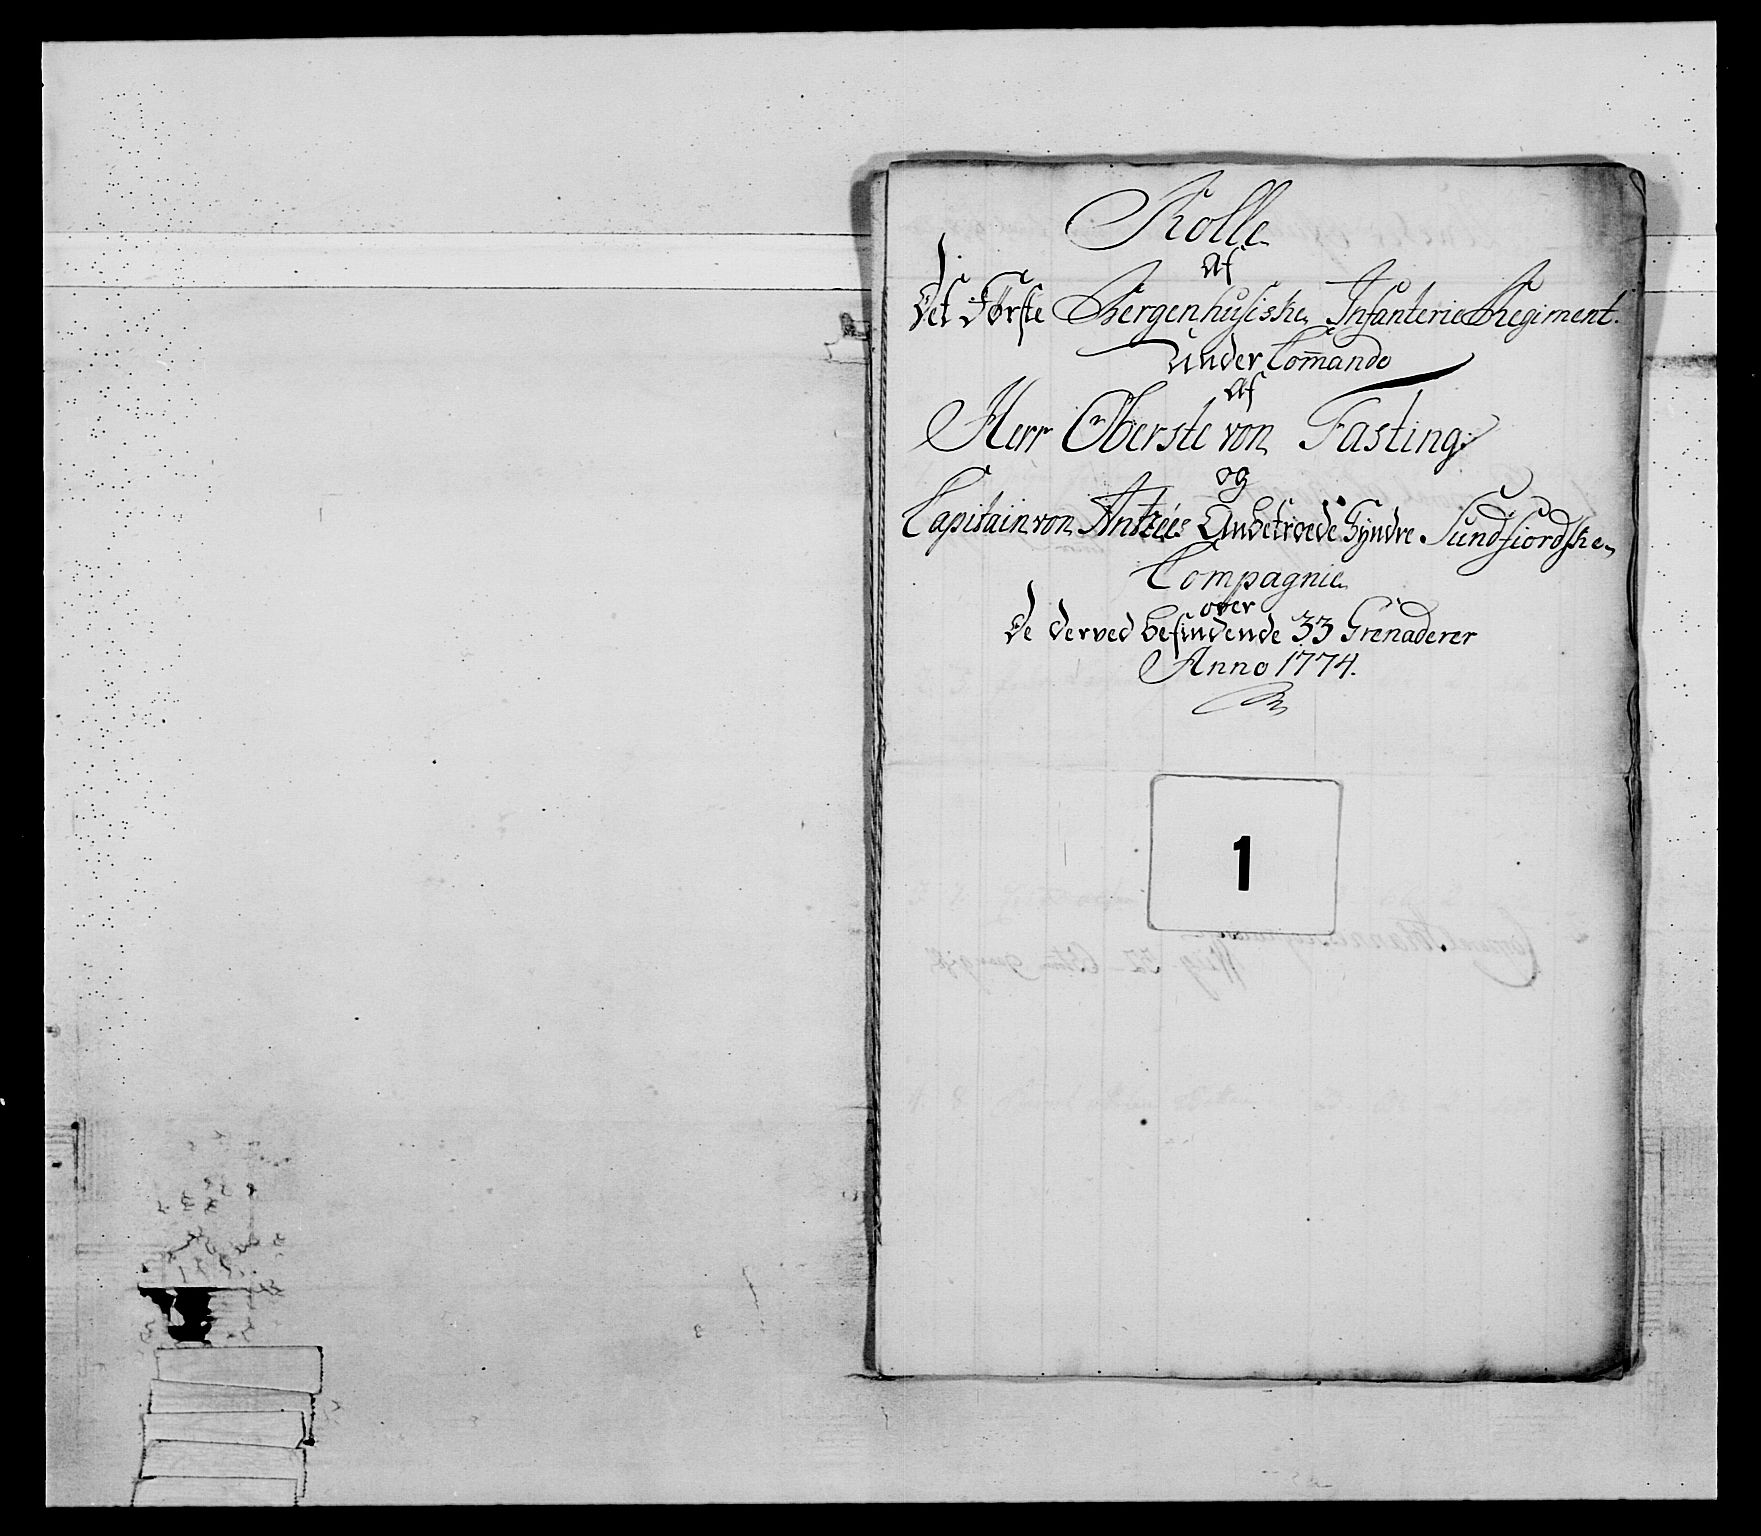 Rolle
Af
Det Første Bergenhusiske Infanterie Regiment.
Under Com̄ando
Af
Herr Oberste von Fasting
og
Capitain von Anbetroede Syndre Sundfiordske
Compagnie
over
De derved befindende 33 Grenaderer
Anno 1774.
1